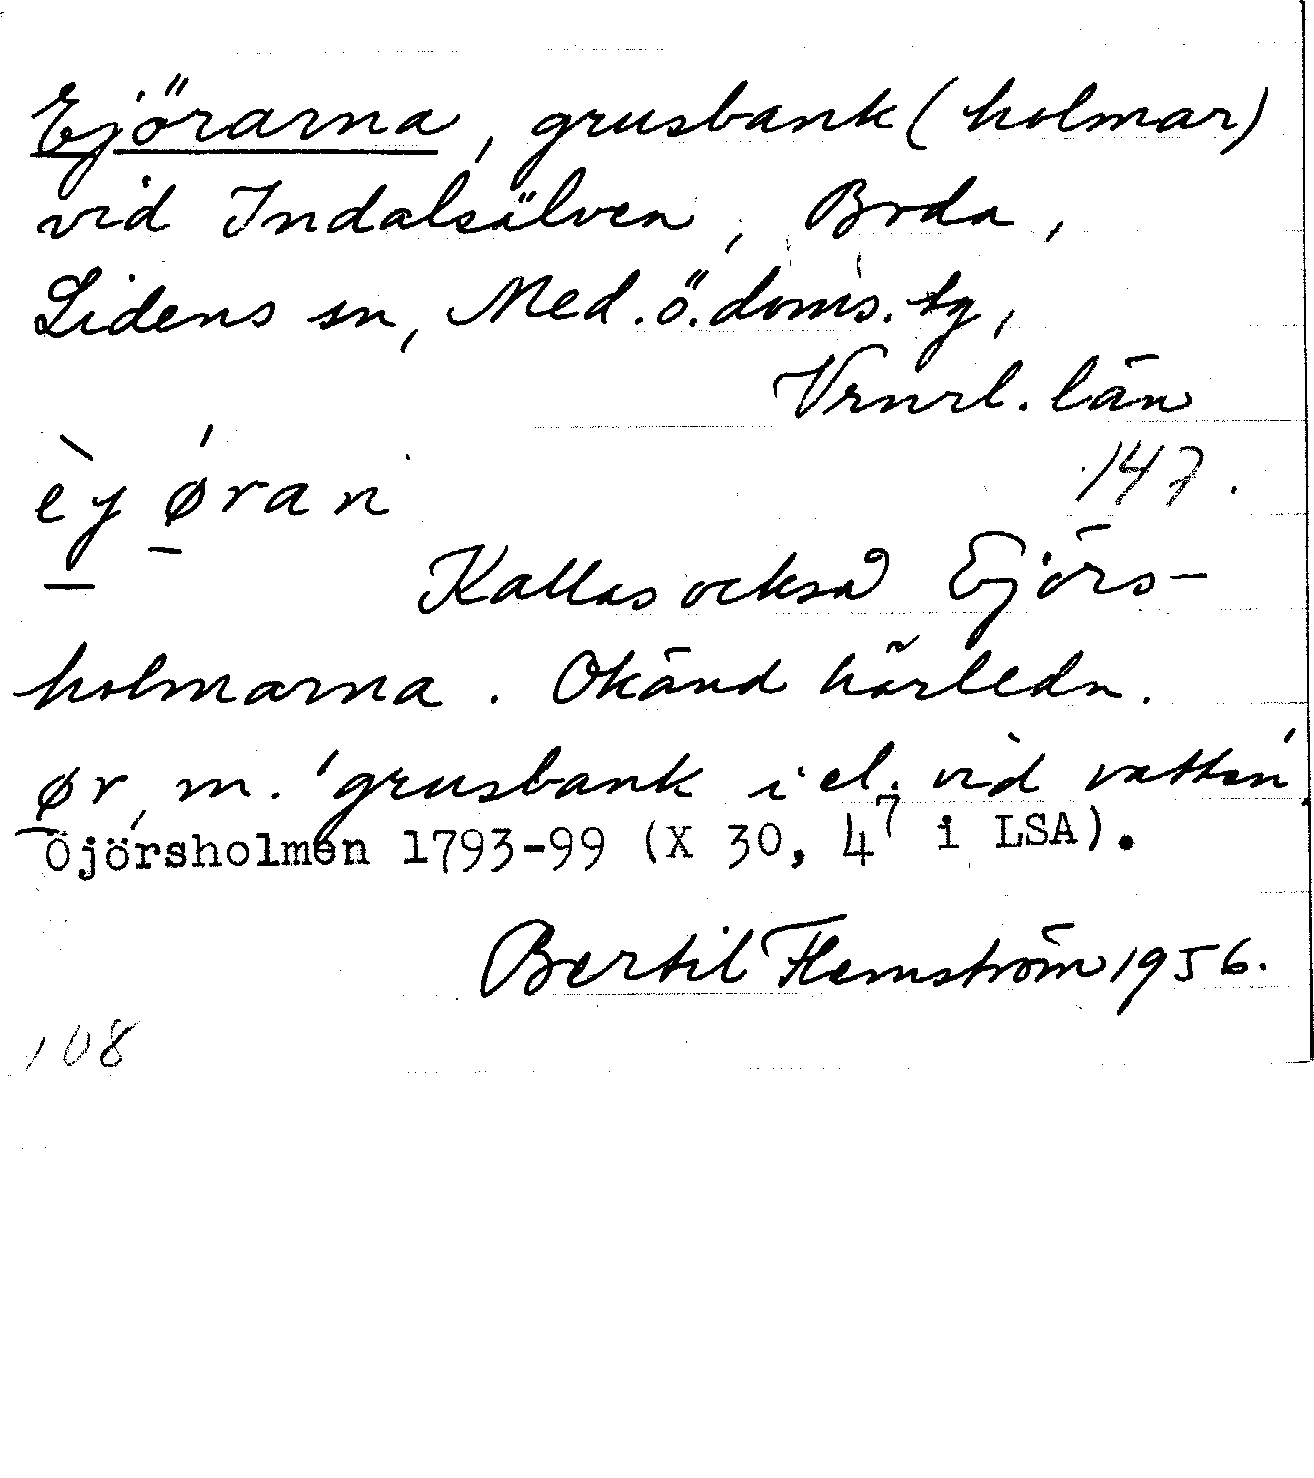 Ejörarna, grusbank (holmar)
vid Indalsälven, Boda,
Lidens sn, Med. ö. doms. tg,
Vrnrl. län
147.
èy ǿran
Kallas också Ejörs-
holmarna. Okänd härledn.
ør, m. 'grusbank i el. vid vatten'.
Öjörsholmen 1793-99 (X 30, 4⁷ i LSA).
Bertil Flemström 1956.
108